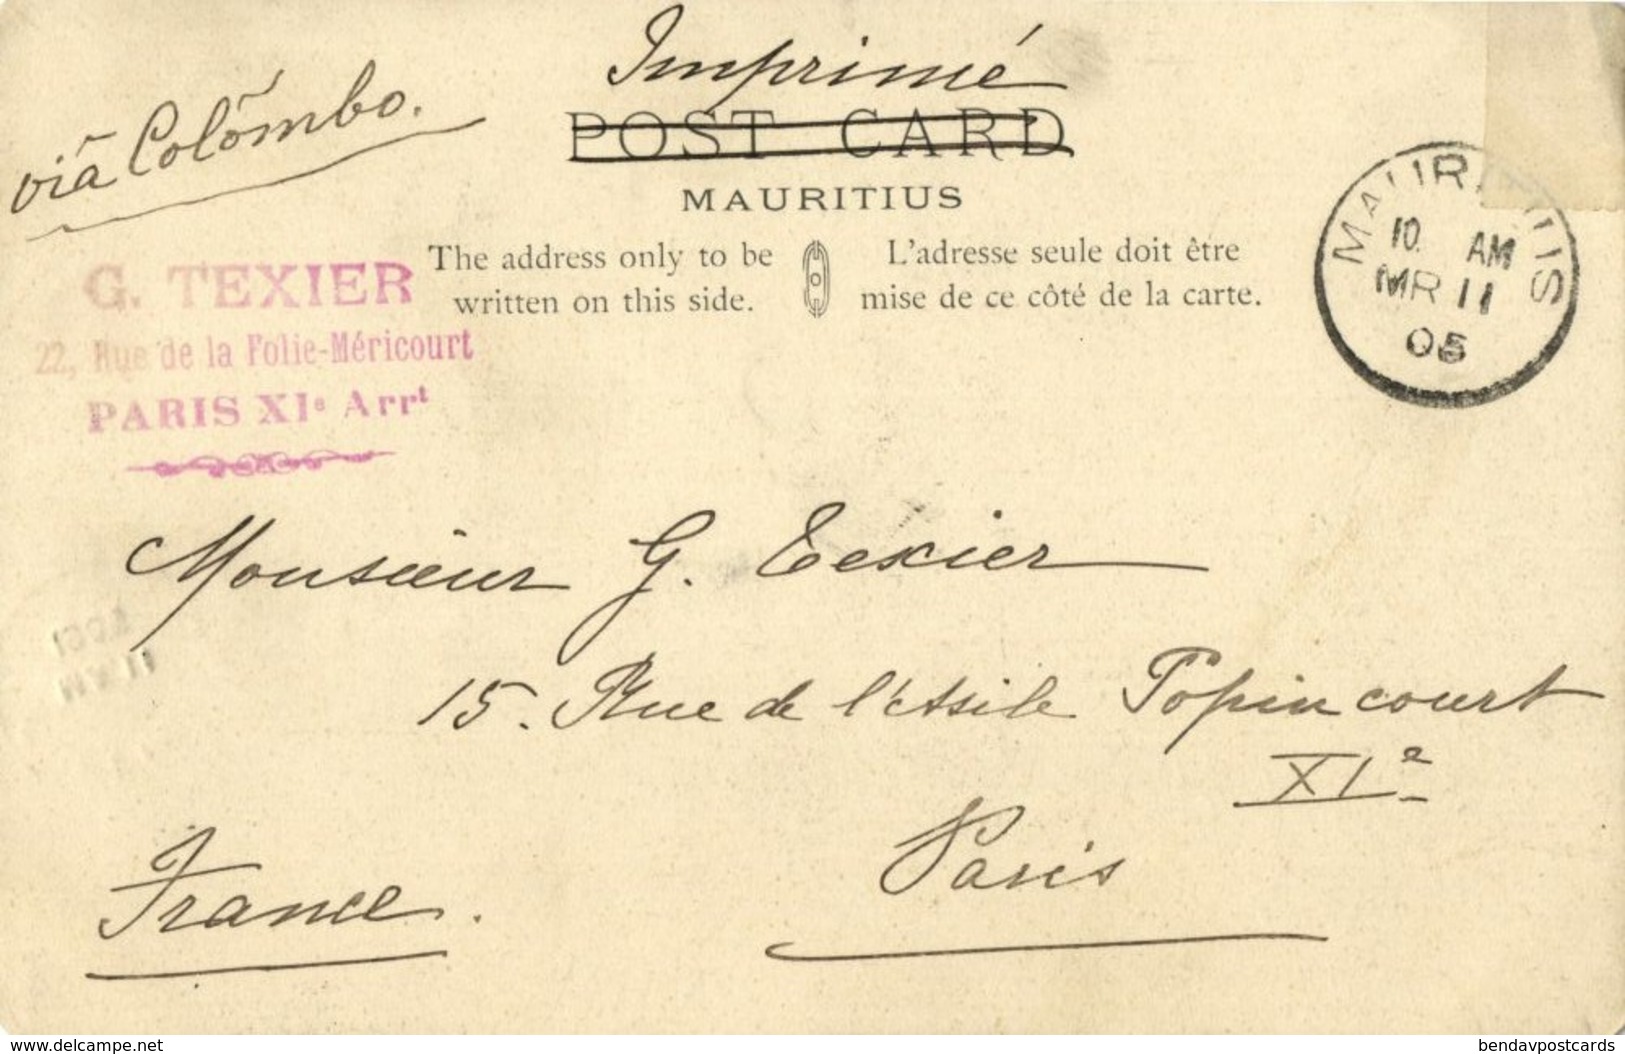 Imprimé
viâ Colombo.
POST CARD
MAURITIUS
The address only to be
written on this side.
L'adresse seule doit être
mise de ce côté de la carte.
MAURITIUS
10 AM
MR 11
05
G. TEXIER
22, Rue de la Folie-Méricourt
PARIS XIe Arrt
Monsieur G. Texier
15. Rue de l'Asile Popincourt
XIe
Paris
France.
www.delcampe.net
bendavpostcards